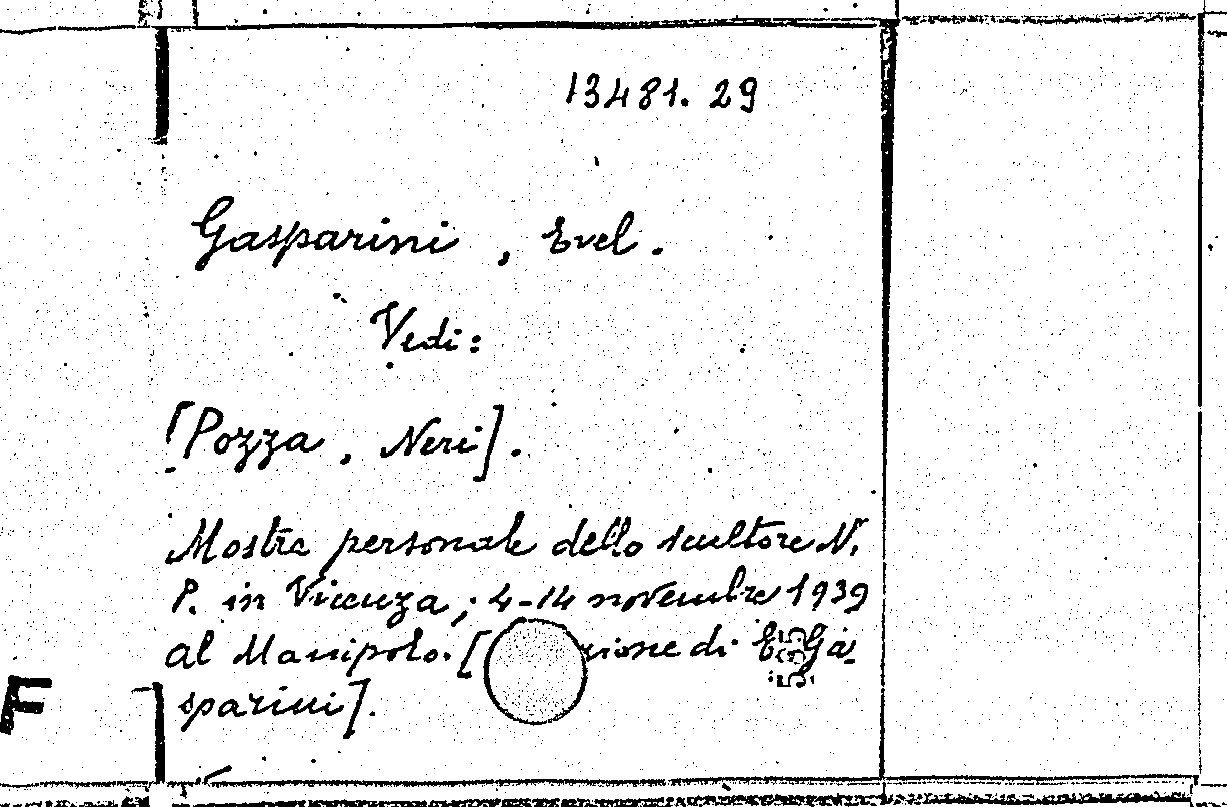 13481. 29
Gasparini, Evel.
Vedi:
[Pozza, Neri].
Mostra personale dello scultore N.
P. in Vicenza; 4-14 novembre 1939
al Manipolo. [ zione di E. Ga-
sparini].
F